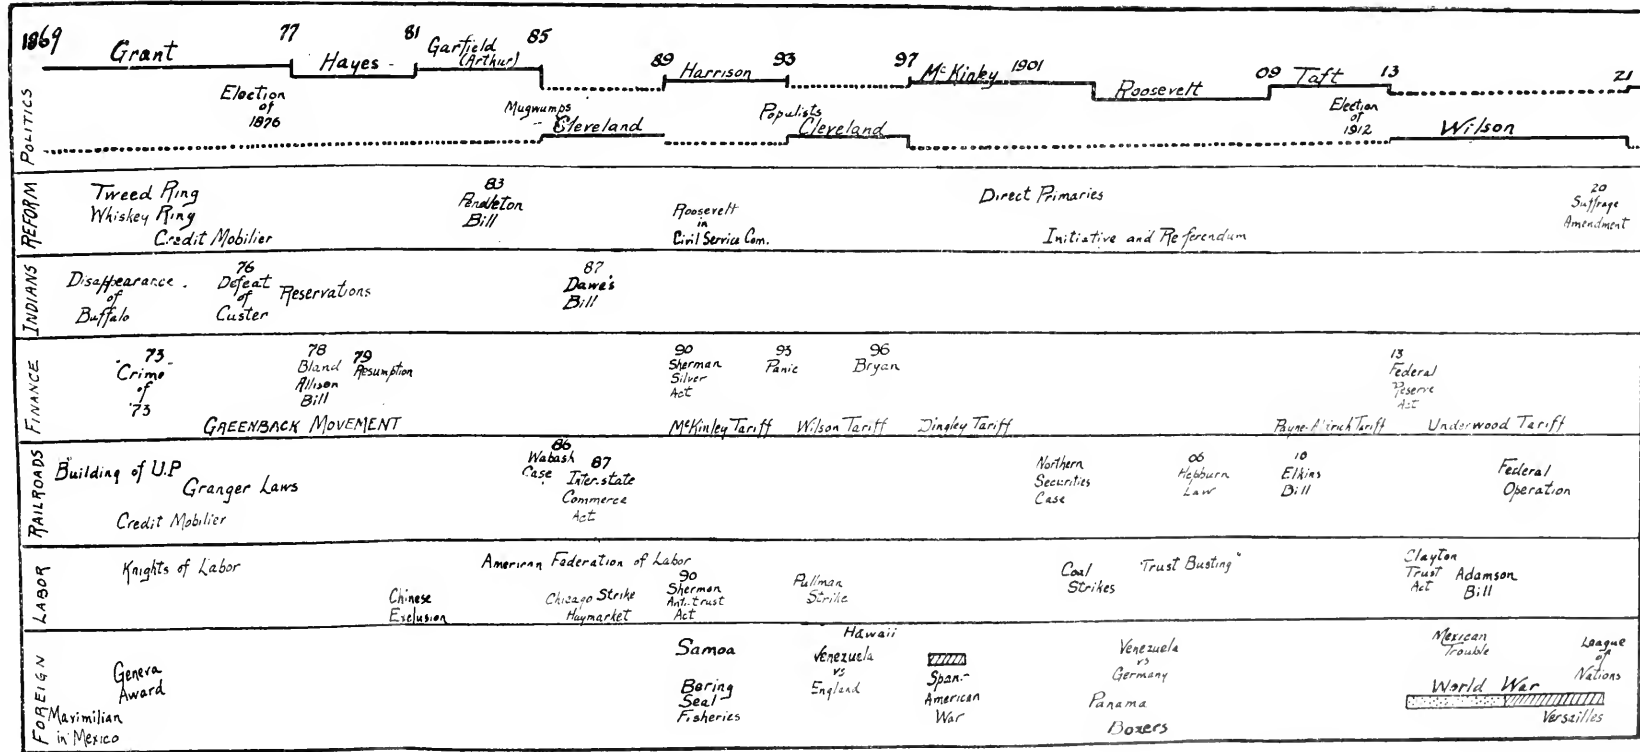 1869 Grant 77 Hayes - 81 Garfield (Arthur) 85
89 Harrison 93 97 McKinley 1901 Roosevelt 09 Taft 13 21
POLITICS
Election
of
1876
Mugwumps
Cleveland
Populists
Cleveland
Election
of
1912
Wilson
REFORM
Tweed Ring
Whiskey Ring
Credit Mobilier
83
Pendleton
Bill
Roosevelt
in
Civil Service Com.
Direct Primaries
Initiative and Referendum
20
Suffrage
Amendment
INDIANS
Disappearance
of
Buffalo
76
Defeat
of
Custer
Reservations
87
Dawe's
Bill
FINANCE
73
"Crime"
of
'73
78
Bland
Allison
Bill
79
Resumption
GREENBACK MOVEMENT
90
Sherman
Silver
Act
93
Panic
96
Bryan
McKinley Tariff
Wilson Tariff
Dingley Tariff
13
Federal
Reserve
Act
Payne-Aldrich Tariff
Underwood Tariff
RAILROADS
Building of U.P
Granger Laws
Credit Mobilier
86
Wabash
Case
87
Inter.state
Commerce
Act
Northern
Securities
Case
06
Hepburn
Law
10
Elkins
Bill
Federal
Operation
LABOR
Knights of Labor
Chinese
Exclusion
American Federation of Labor
Chicago Strike
Haymarket
90
Sherman
Anti-trust
Act
Pullman
Strike
Coal
Strikes
"Trust Busting"
Clayton
Trust
Act
Adamson
Bill
FOREIGN
Geneva
Award
Maximilian
in Mexico
Samoa
Bering
Seal
Fisheries
Hawaii
Venezuela
vs
England
Span.-
American
War
Venezuela
vs
Germany
Panama
Boxers
Mexican
Trouble
World War
League
of
Nations
Versailles